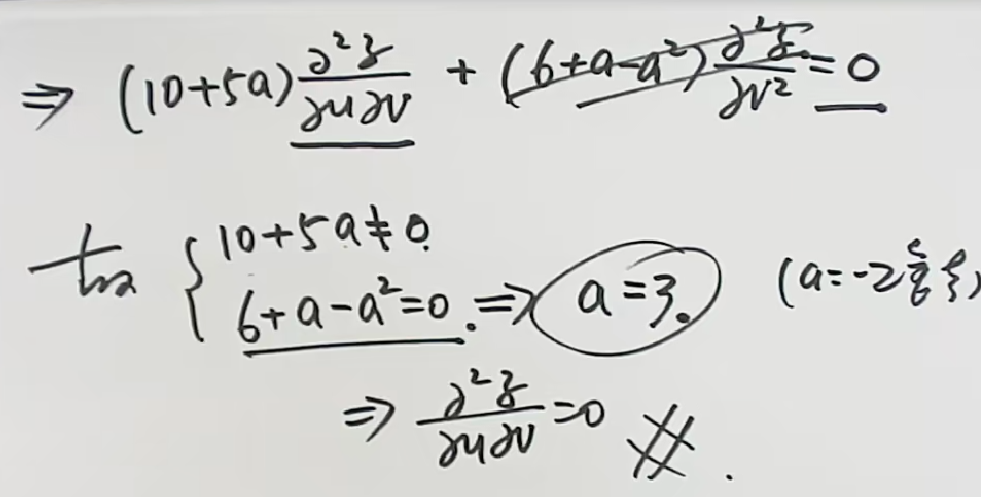 ⇒ (10+5a) ∂²z/∂u∂v + (6+a-a²) ∂²z/∂v² = 0
{ 10+5a≠0.
6+a-a²=0. ⇒ a=3. (a=-2
⇒ ∂²z/∂u∂v =0 #.